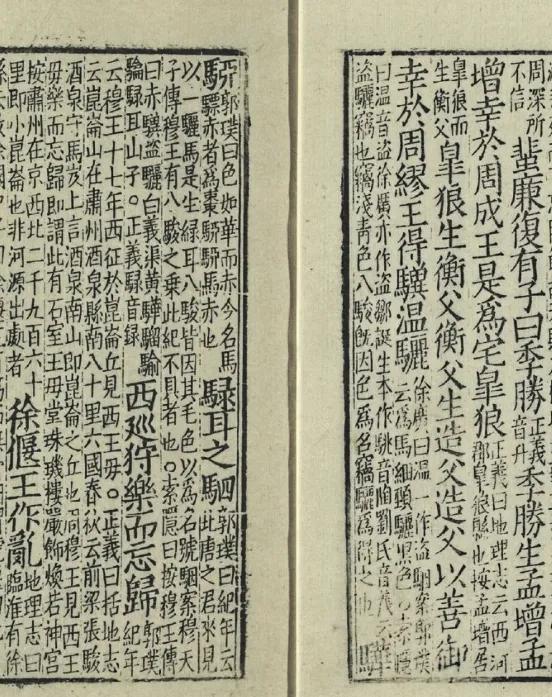 周深所
不信
蜚廉復有子曰季勝
正義
音升
季勝生孟增孟
增幸於周成王是爲宅皐狼
正義曰地理志云西河
郡皐狼縣也按孟增居
皐狼而
生衡父
皐狼生衡父衡父生造父造父以善御
幸於周繆王得驥溫驪
徐廣曰溫一作盜駰案郭璞
云爲馬細頸驪黑色○索隱
曰溫音盜徐廣亦作盜鄒誕生本作駣音陶劉氏音義云
盜驪竊也竊淺青色八駿旣因色爲名竊驪爲得之也
驊
郭璞曰色如華而赤今名馬
驃赤者爲棗駵駵馬赤也
騄耳之駟
郭璞曰紀年云
北唐之君來見
以一驪馬是生綠耳八駿皆因其毛色以爲名號駰案穆天
子傳穆王有八駿之乘此紀不具者也○索隱曰按穆王傳
曰赤驥盜驪白義渠黃驊騮騟
騄耳山子○正義騄音録
西廵狩樂而忘歸
郭璞
紀年
云穆王十七年西征於崑崙丘見西王母○正義曰括地志
云崑崙山在肅州酒泉縣南八十里六國春秋云前梁張駿
酒泉守馬岌上言酒泉南山即崑崙之丘也周穆王見西王
母樂而忘歸即謂此有石室王母堂珠璣鏤嚴飾煥若神宮
按肅州在京西北二千九百六十
里即小崑崙也非河源出處者
徐偃王作亂
地理志曰
臨淮有徐